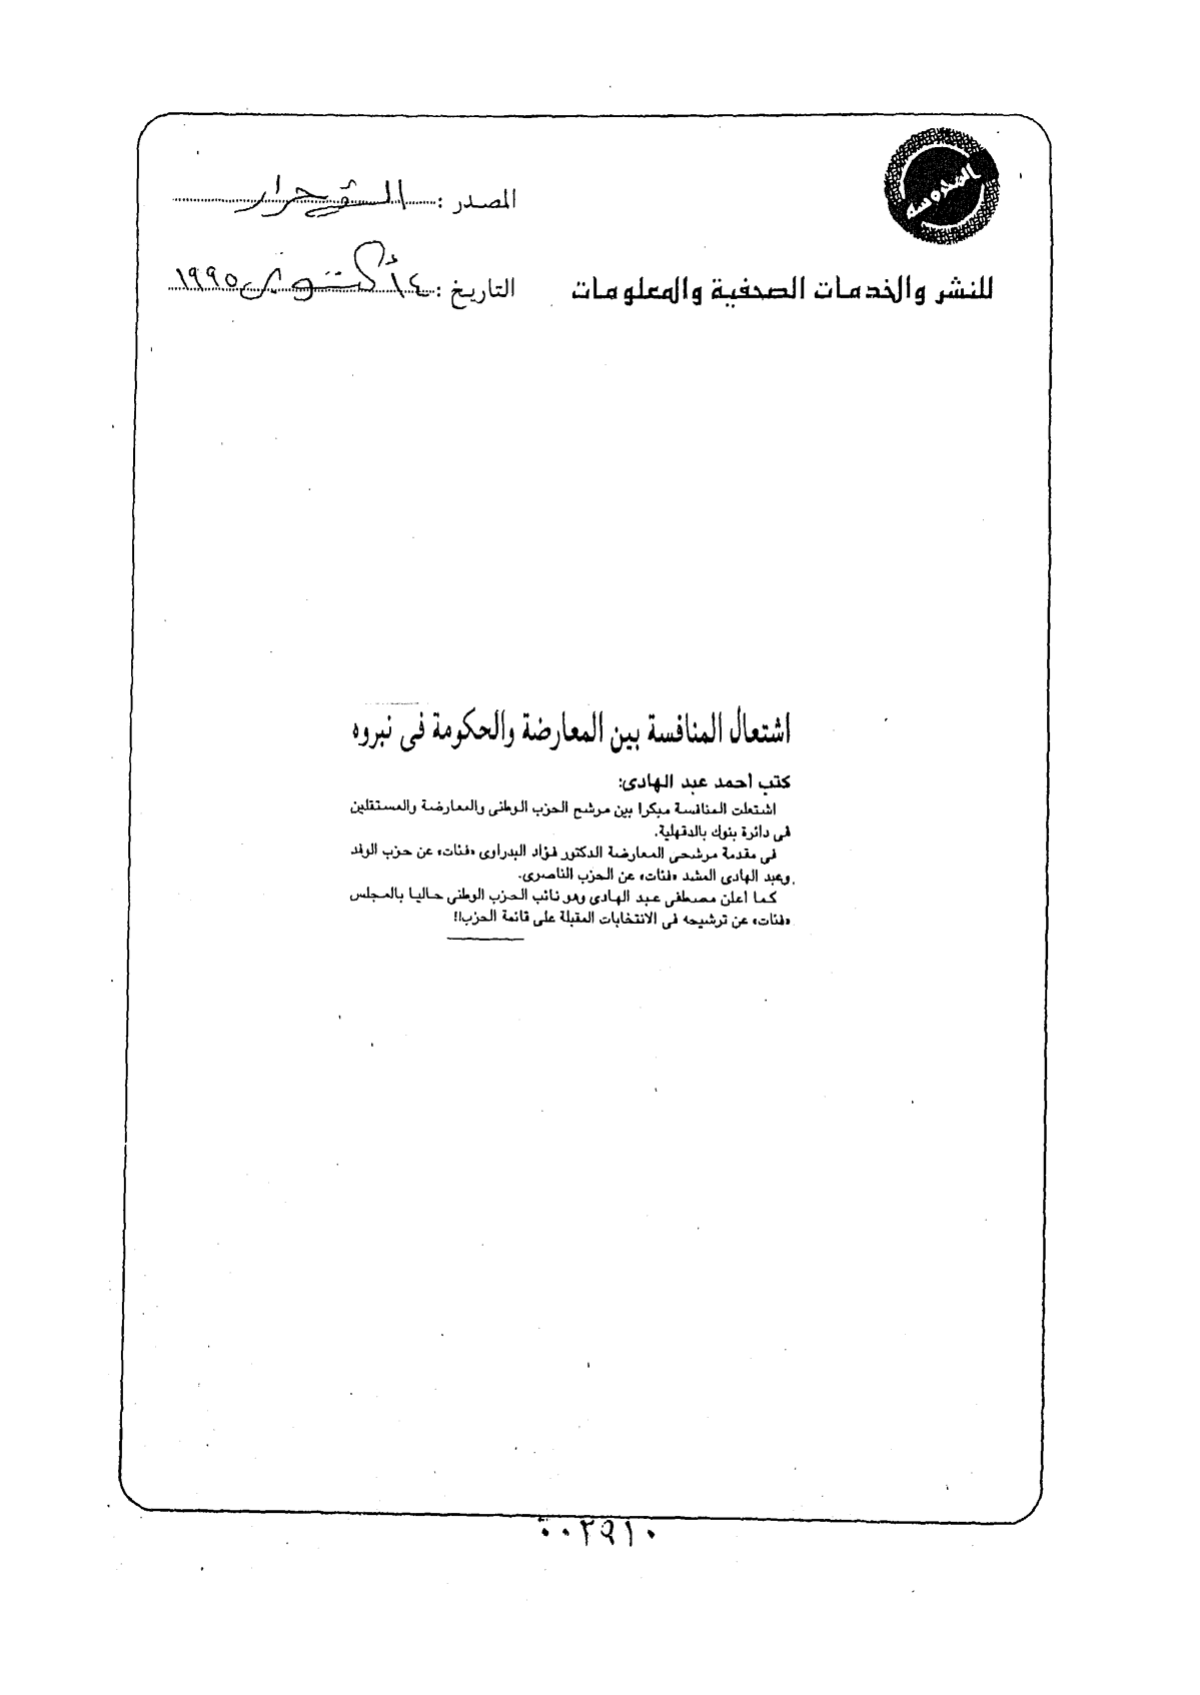 المصدر :
التاريخ : ١٤ أكتوبر ١٩٩٥
للنشر والخدمات الصحفية والمعلومات
اشتعال المنافسة بين المعارضة والحكومة فى نبروه
كتب أحمد عبد الهادى:
اشتعلت المنافسة مبكرا بين مرشح الحزب الوطنى والمعارضة والمستقلين
فى دائرة بنوك بالدقهلية.
فى مقدمة مرشحى المعارضة الدكتور فؤاد البدراوى «فئات» عن حزب الوفد
وعبد الهادى المشد «فئات» عن الحزب الناصرى.
كما أعلن مصطفى عبد الهادى وهو نائب الحزب الوطنى حاليا بالمجلس
«فئات» عن ترشيحه فى الانتخابات المقبلة على قائمة الحزب!!